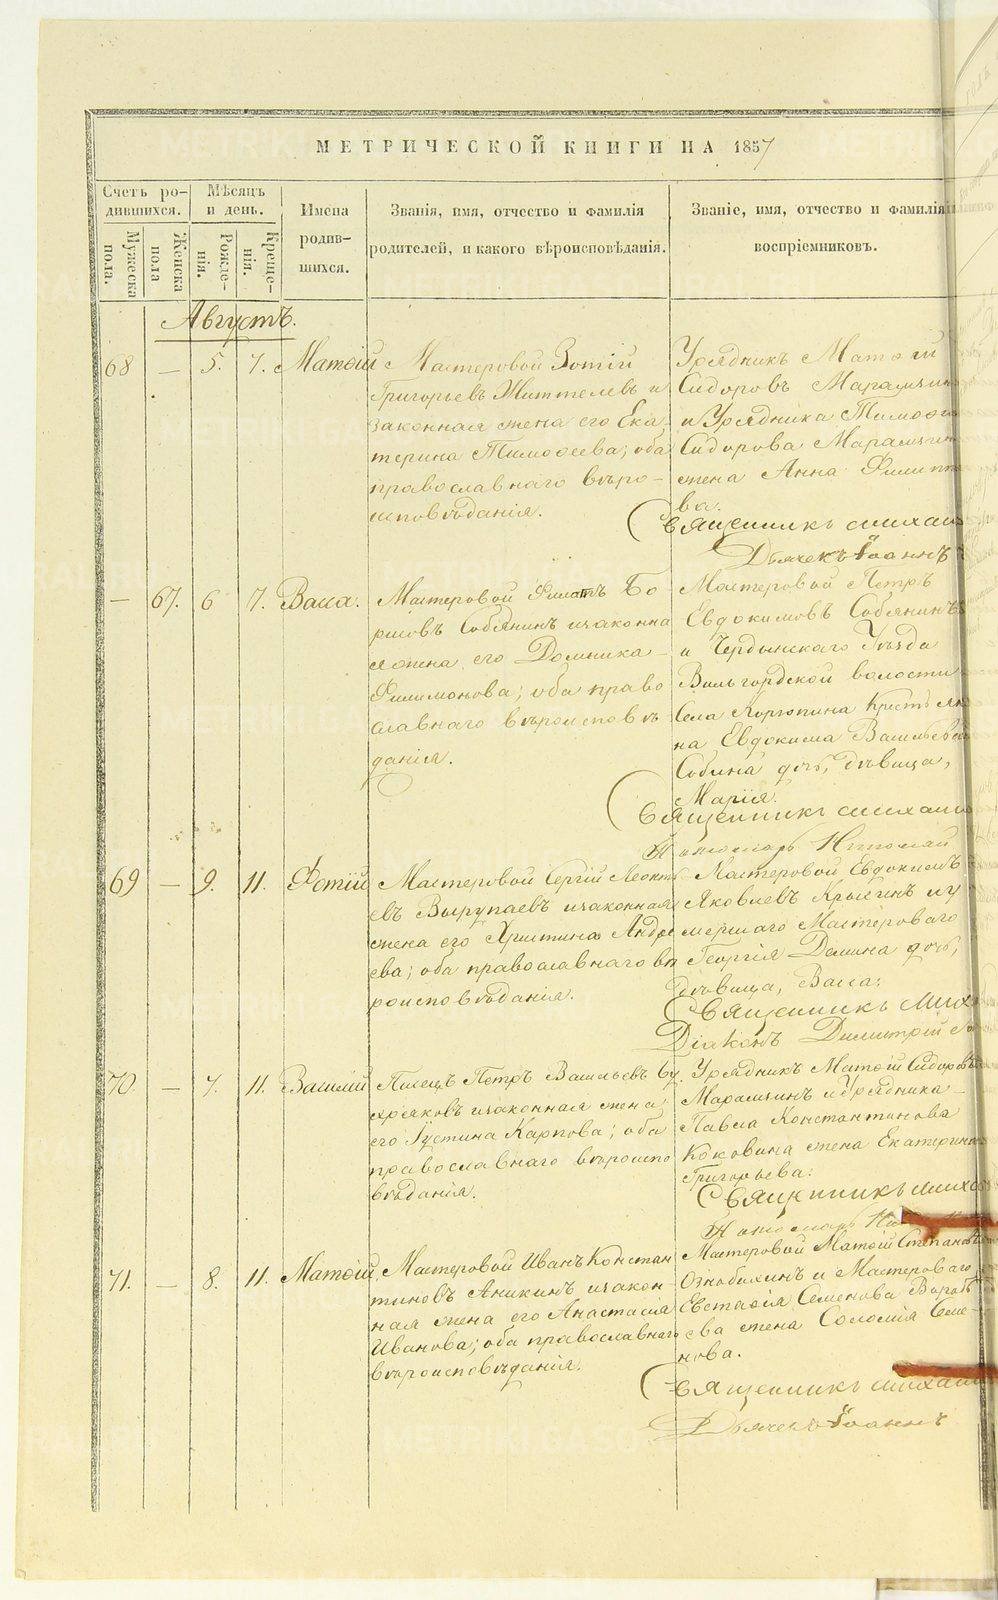 МЕТРИЧЕСКОЙ КНИГИ НА 1857
Счетъ ро-
дившихся.
Мужеска
пола.
Женска
пола
Мѣсяцъ
и день.
Рожде-
нія.
Креще-
нія.
Имена
родив-
шихся.
Званія, имя, отчество и фамилія
родителей, и какого вѣроисповѣданія.
Званіе, имя, отчество и фамилія
воспріемниковъ.
Августъ.
68 — 5. 7. Матѳій
Мастеровой Зотій
Григорьевъ Життелевъ и
законная жена его Ека
терина Тимоѳеева; оба
православнаго вѣро-
исповѣданія.
Урядникъ Матѳій
Сидоровъ
и Урядника
Сидорова
жена Анна Филиппо
ва.
Священникъ Михаил
Дьячекъ Іоаннъ
— 67. 6 7. Васса.
Мастеровой Филатъ Бо
рисовъ Собянинъ изаконна
я жена его Домника
Филимонова; оба право
славнаго вѣроисповѣ
данія.
Мастеровой Петръ
Евдокимовъ Собянинъ
и Чердынскаго Уѣзда
Вильгордской волости
Села Корюпина Крестьяни
на Евдокима Васильева
Собина дочь, дѣвица,
Марія.
Священникъ Михаил
Пономарь Николай
69 — 9. 11. Фотій
Мастеровой Сергій Леонть
евъ Вырупаевъ изаконная
жена его Христина Андре
ева; оба православнаго вѣ
роисповѣданія.
Мастеровой Евдокимъ
Яковлевъ Крысинъ иу
мершаго Мастероваго
Георгія Демина дочь,
дѣвица, Васса:
Священникъ Мих
Діаконъ Димитрій
70. — 7. 11. Василій
Писецъ Петръ Васильевъ Бу
хряковъ изаконная жена
его Іустина Карпова; оба
православнаго вѣроиспо
вѣданія.
Урядникъ Матѳій Сидоровъ
Марамзинъ иУрядника
Павла Константинова
Коковина жена Екатерина
Григорьева:
Священникъ Миха
Пономарь
71. — 8. 11. Матѳій
Мастеровой Иванъ Констан
тиновъ Аникинъ изакон-
ная жена его Анастасія
Иванова; оба православнаго
вѣроисповѣданія.
Мастеровой Матѳій Степановъ
Ознобихинъ и Мастероваго
Евстафія Семенова Вороб
ева жена Соломія Семе-
нова.
Священникъ Михаил
Дьячекъ Іоаннъ